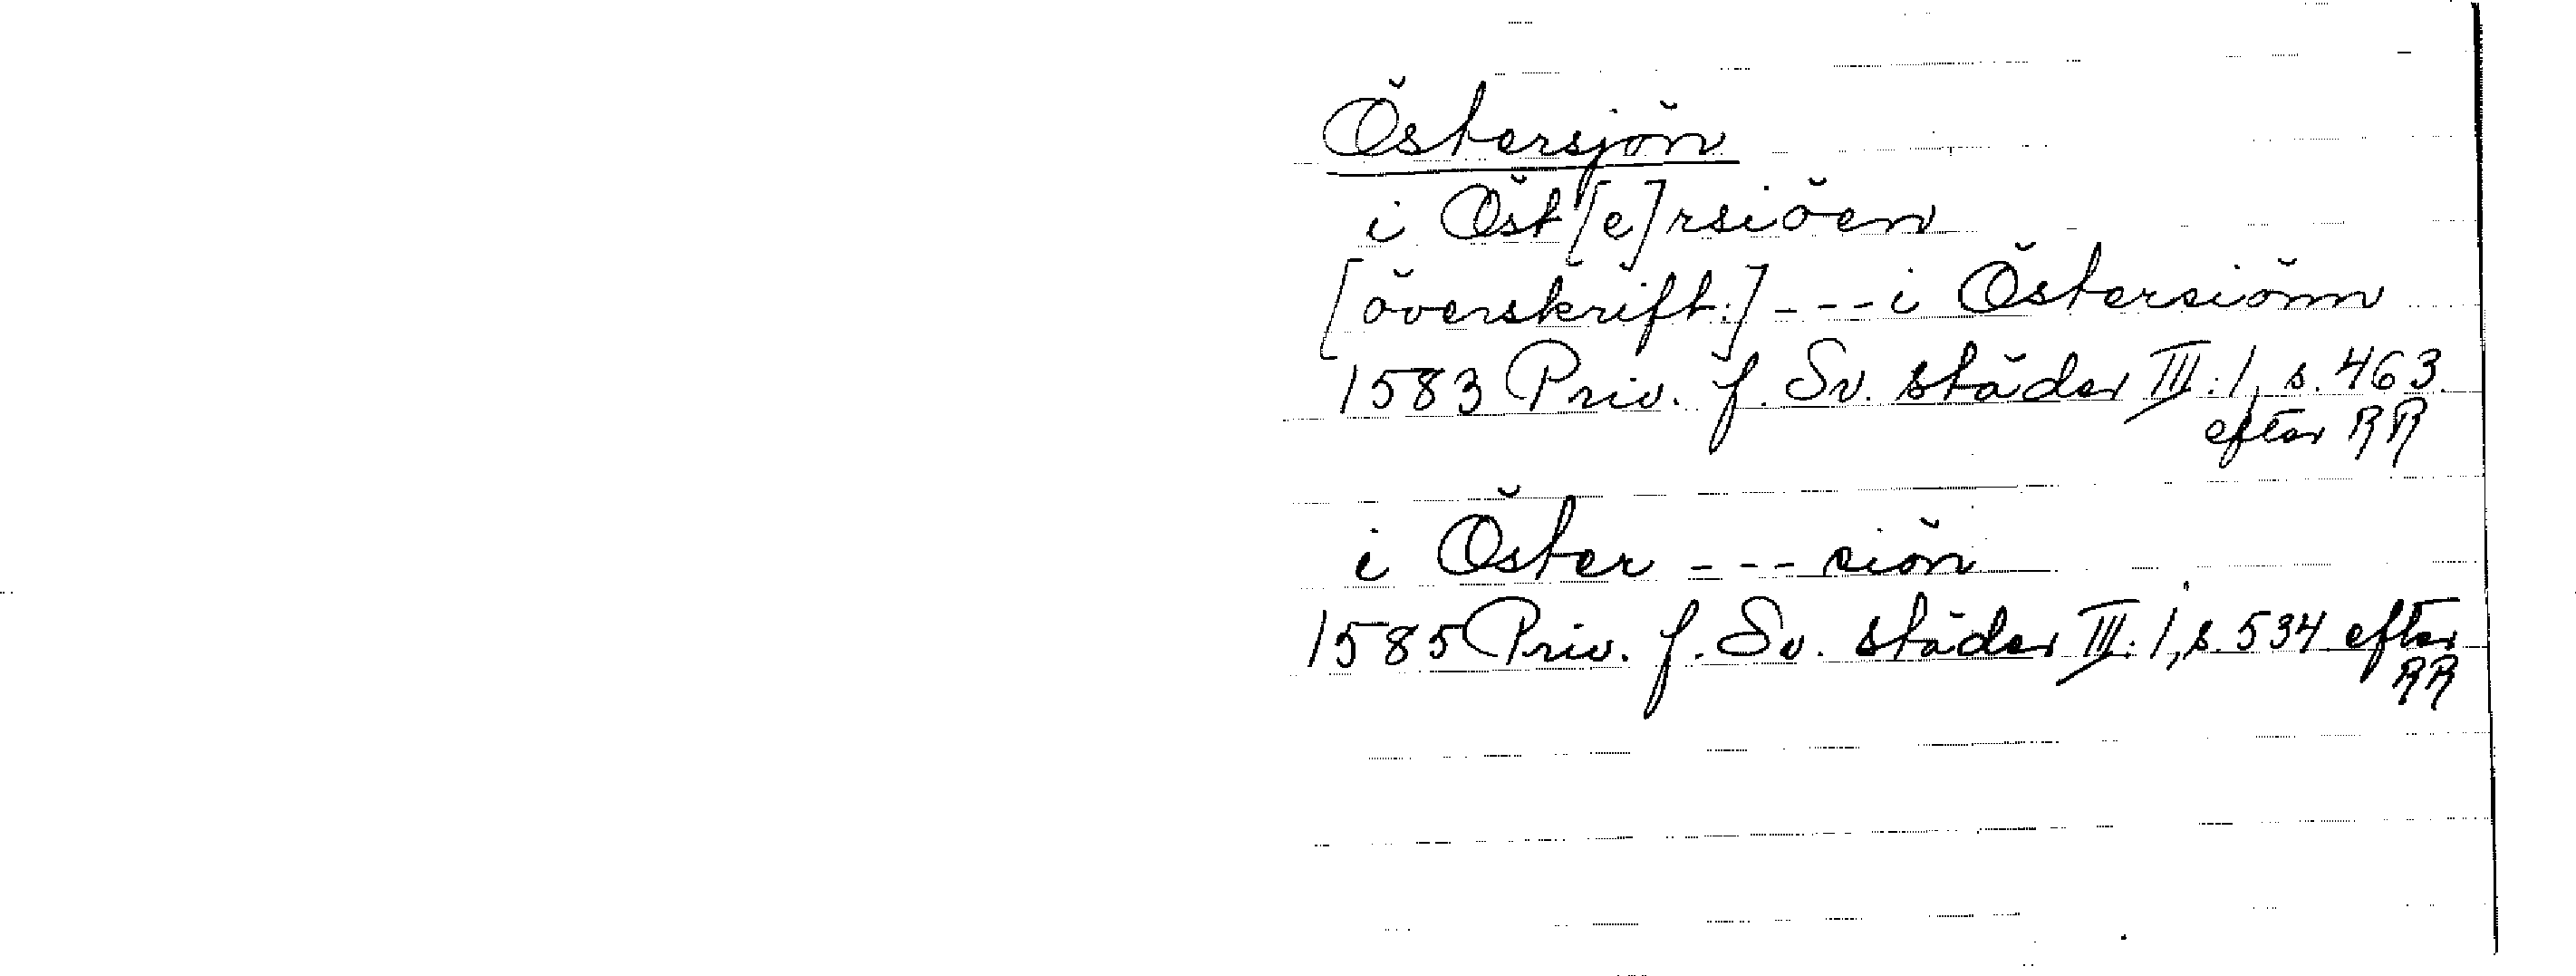 Östersjön
i Öst[e]rsiöen
[överskrift:] --- i Östersiönn
1583 Priv. f. Sv. städer III:1, s. 463
efter RR
i Öster --- siön
1585 Priv. f. Sv. städer III:1, s. 534 efter
RR